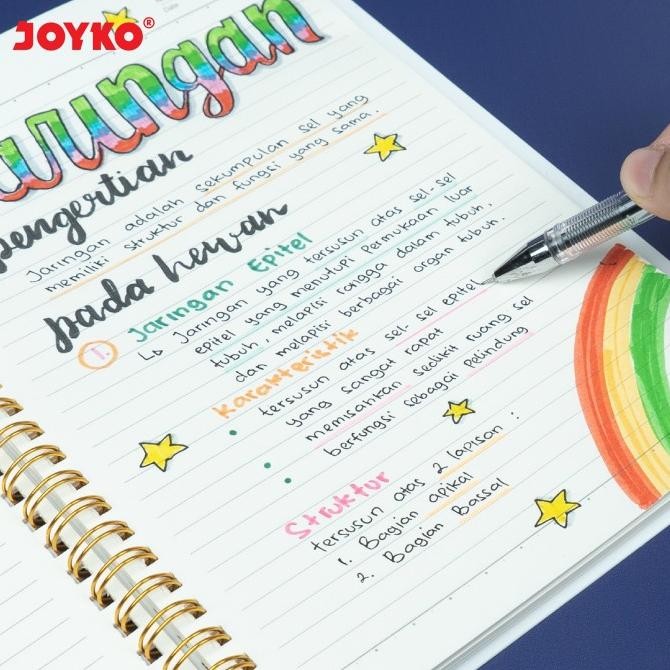 JOYKO®
arungan
pengertian
Jaringan adalah sekumpulan sel yang
memiliki struktur dan fungsi yang sama.
pada hewan
1. Jaringan Epitel
↳ Jaringan yang tersusun atas sel-sel
epitel yang menutupi permukaan luar
tubuh, melapisi rongga dalam tubuh,
dan melapisi berbagai organ tubuh.
Karakteristik
• tersusun atas sel-sel epitel
yang sangat rapat
• memisahkan sedikit ruang sel
• berfungsi sebagai pelindung
Struktur
tersusun atas 2 lapisan :
1. Bagian apikal
2. Bagian Bassal